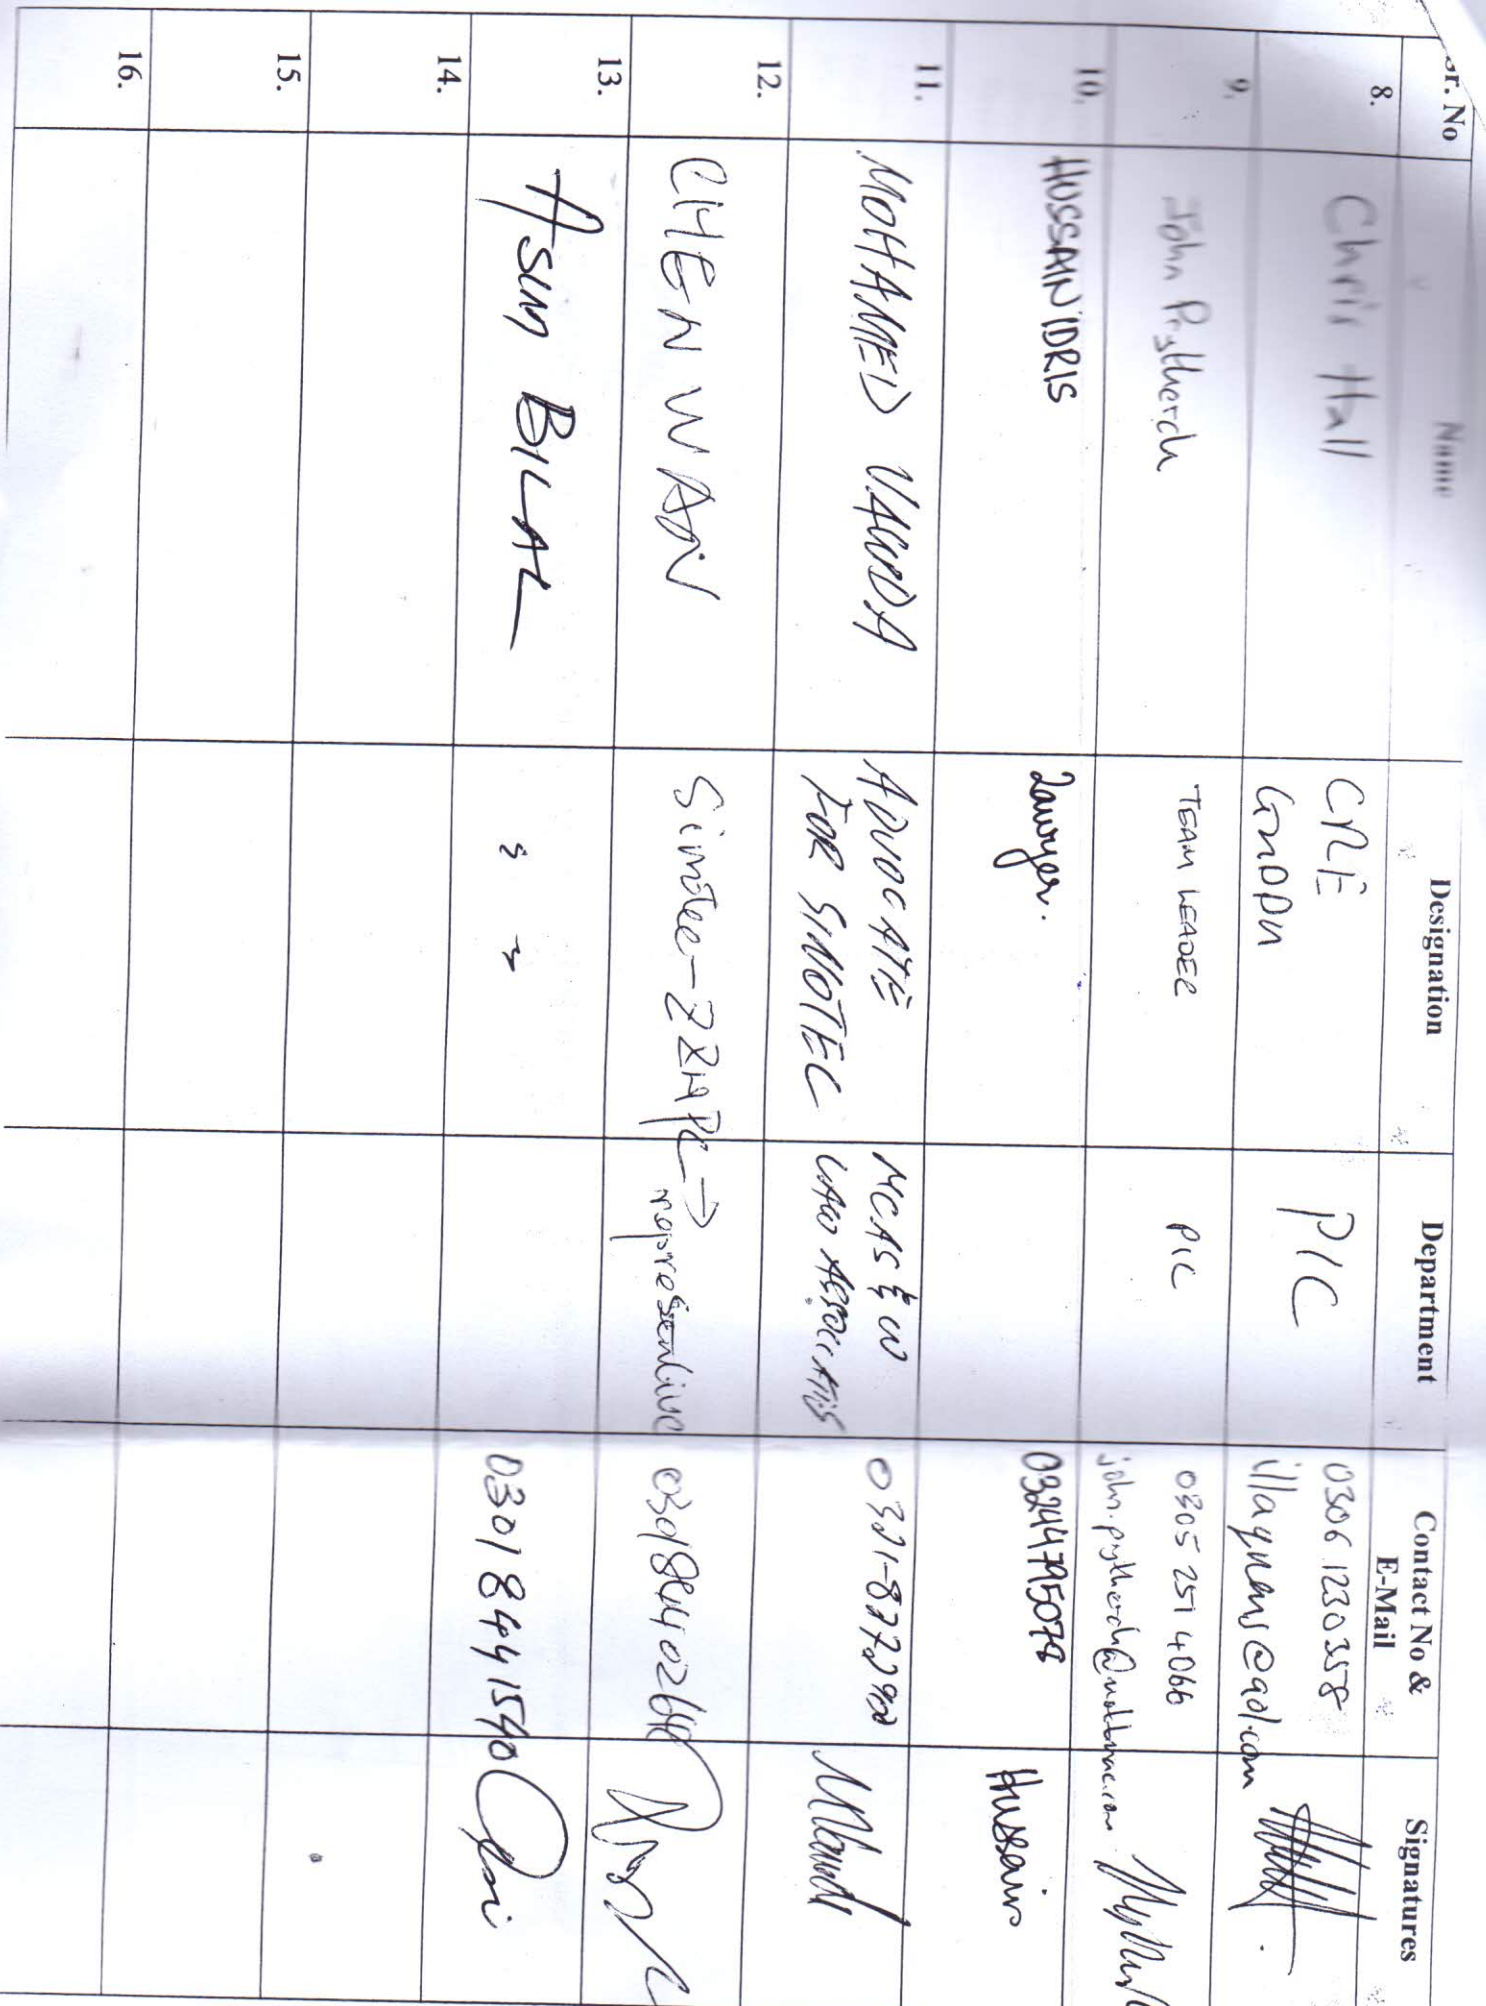 Sr. No Name Designation Department Contact No & E-Mail Signatures
8. Chris Hall CRE PIC 0306 1230358
illaqueus@aol.com
9. John Prytherch TEAM LEADER PIC 0305 251 4066
10. HUSSAIN IDRIS Lawyer. 03244795078 Hussain
11. MOHAMED VAWDA ADVOCATE FOR SINOTEC MCAS & W LAW ASSOCIATES
12. CHEN WAN representive
13. ASIM BILAL " " 0301 8441540
14.
15.
16.